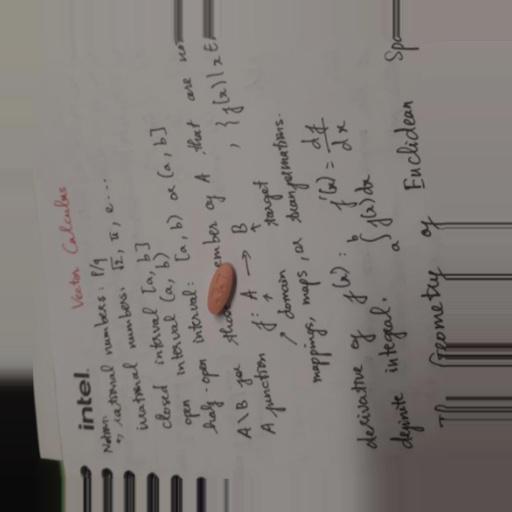 Vector Calculus
intel
Notion:
rational numbers: p/q
irrational numbers: √2, π, e...
closed interval [a, b]
open interval (a, b)
half-open interval: [a, b) or (a, b]
A\B for ember of A that are no
A function f: A → B , {f(x) | x E
domain target
mappings, maps, or transformations.
derivative of f(x): f'(x) = df/dx
definite integral. ∫ₐᵇ f(x)dx
Geometry of Euclidean Spa